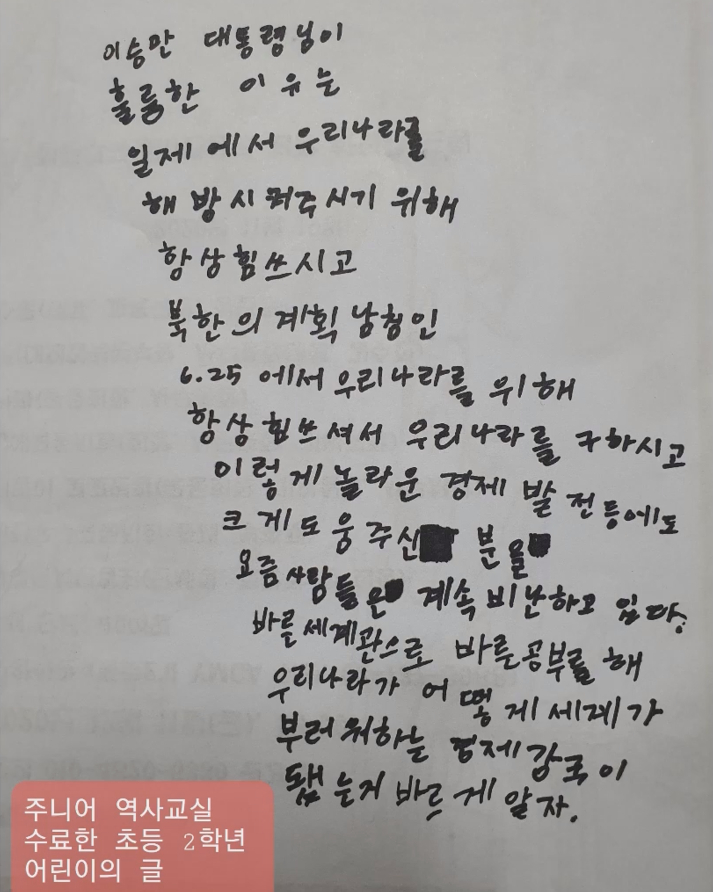 이승만 대통령님이
훌륭한 이유는
일제에서 우리나라를
해방시켜주시기 위해
항상힘쓰시고
북한의 계획 남침인
6.25 에서 우리나라를 위해
항상 힘쓰셔서 우리나라를 구하시고
이렇게 놀라운 경제 발전등에도
크게도움주신 분을
요즘 사람들은 계속 비난하고 있다.
바른세계관으로 바른공부를 해
우리나라가 어떻게 세계가
부러워하는 경제강국이
됐는지 바르게 알자.
주니어 역사교실
수료한 초등 2학년
어린이의 글